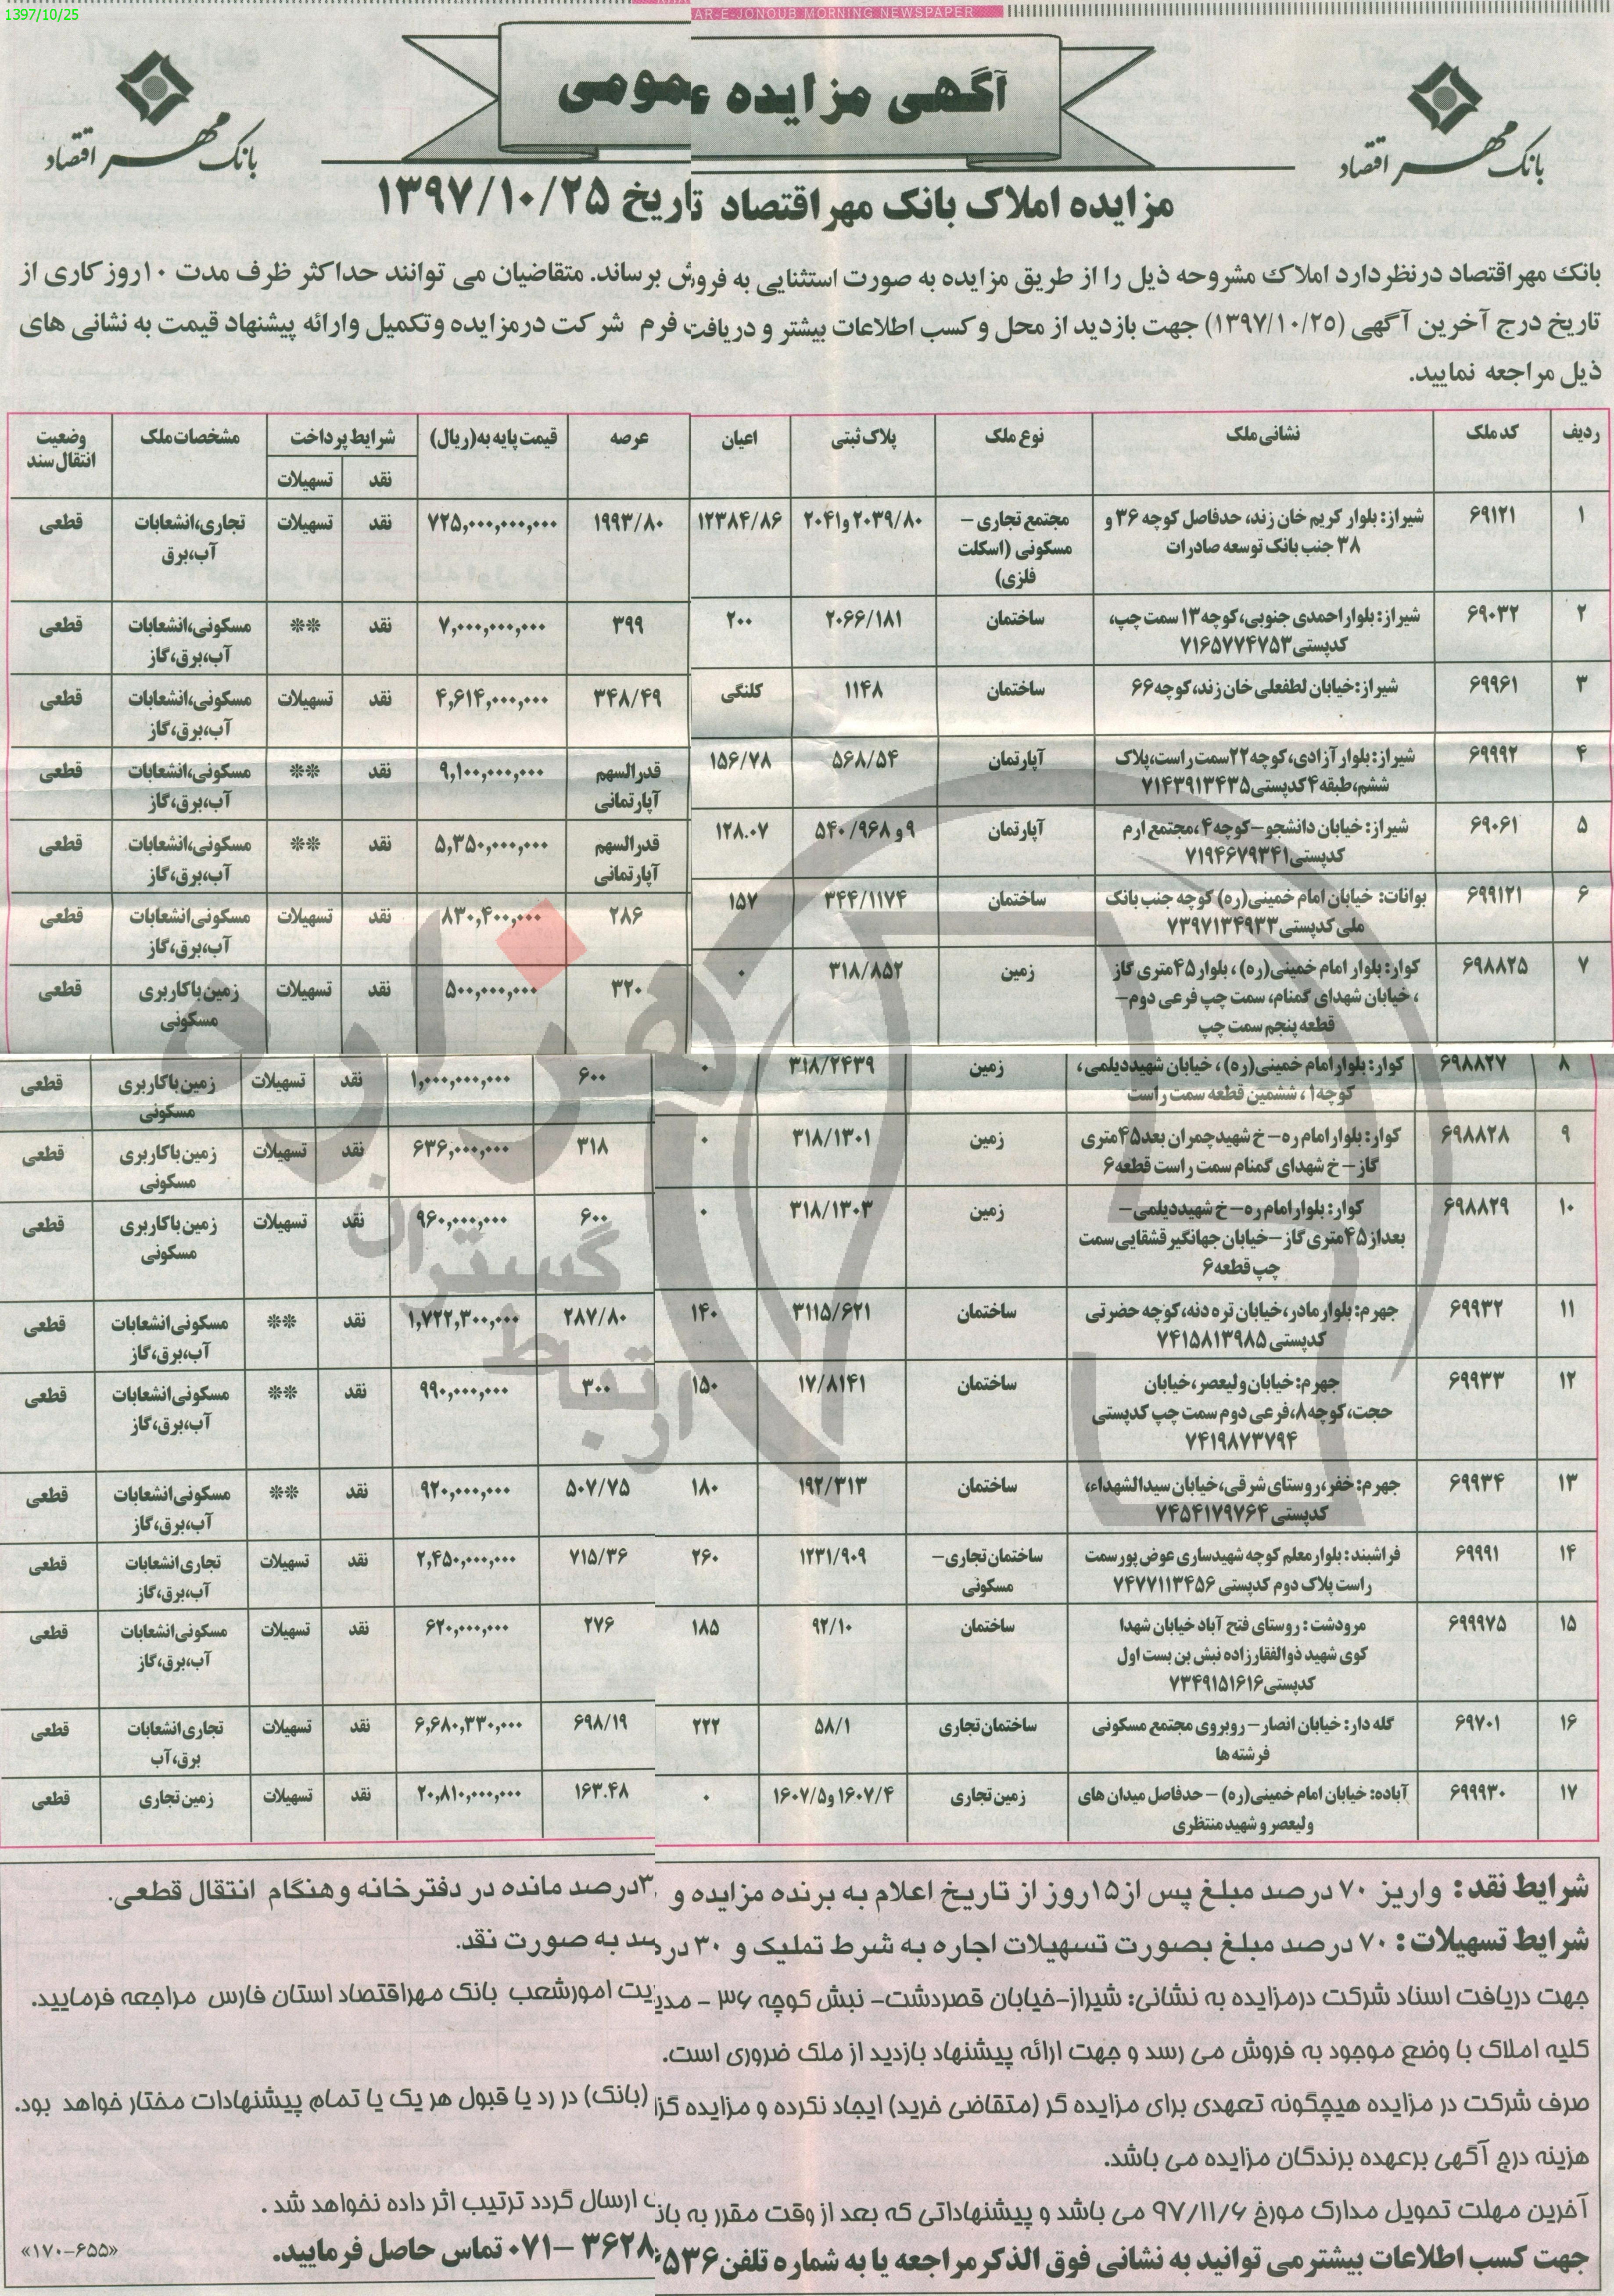 1397/10/25
AR-E-JONOUB MORNING NEWSPAPER
آگهی مزایده عمومی
بانک مهر اقتصاد
بانک مهر اقتصاد
مزایده املاک بانک مهر اقتصاد تاریخ ۱۳۹۷/۱۰/۲۵
بانک مهر اقتصاد درنظر دارد املاک مشروحه ذیل را از طریق مزایده به صورت استثنایی به فروش برساند. متقاضیان می توانند حداکثر ظرف مدت ۱۰روز کاری از
تاریخ درج آخرین آگهی (۱۳۹۷/۱۰/۲۵) جهت بازدید از محل و کسب اطلاعات بیشتر و دریافت فرم شرکت درمزایده وتکمیل وارائه پیشنهاد قیمت به نشانی های
ذیل مراجعه نمایید.
ردیف کد ملک نشانی ملک نوع ملک پلاک ثبتی اعیان عرصه قیمت پایه به(ریال) شرایط پرداخت مشخصات ملک وضعیت
انتقال سند
نقد تسهیلات
۱ ۶۹۱۲۱ شیراز: بلوار کریم خان زند، حدفاصل کوچه ۳۶ و مجتمع تجاری – ۲۰۳۹/۸۰ و۲۰۴۱ ۱۲۳۸۴/۸۶ ۱۹۹۳/۸۰ ۷۲۵,۰۰۰,۰۰۰,۰۰۰ نقد تسهیلات تجاری،انشعابات قطعی
۳۸ جنب بانک توسعه صادرات مسکونی (اسکلت آب،برق
فلزی)
۲ ۶۹۰۳۲ شیراز: بلوار احمدی جنوبی،کوچه ۱۳ سمت چپ، ساختمان ۲۰۶۶/۱۸۱ ۲۰۰ ۳۹۹ ۷,۰۰۰,۰۰۰,۰۰۰ نقد ** مسکونی،انشعابات قطعی
کدپستی۷۱۶۵۷۷۴۷۵۳ آب،برق،گاز
۳ ۶۹۹۶۱ شیراز:خیابان لطفعلی خان زند،کوچه ۶۶ ساختمان ۱۱۴۸ کلنگی ۳۴۸/۴۹ ۴,۶۱۴,۰۰۰,۰۰۰ نقد تسهیلات مسکونی،انشعابات قطعی
آب،برق،گاز
۴ ۶۹۹۹۲ شیراز:بلوار آزادی،کوچه۲۲سمت راست،پلاک آپارتمان ۵۶۸/۵۴ ۱۵۶/۷۸ قدرالسهم ۹,۱۰۰,۰۰۰,۰۰۰ نقد ** مسکونی،انشعابات قطعی
ششم،طبقه۴کدپستی۷۱۴۳۹۱۳۴۳۵ آپارتمانی آب،برق،گاز
۵ ۶۹۰۶۱ شیراز: خیابان دانشجو–کوچه۴،مجتمع ارم آپارتمان ۹ و ۵۴۰/۹۶۸ ۱۲۸.۰۷ قدرالسهم ۵,۳۵۰,۰۰۰,۰۰۰ نقد ** مسکونی،انشعابات قطعی
کدپستی۷۱۹۴۶۷۹۳۴۱ آپارتمانی آب،برق،گاز
۶ ۶۹۹۱۲۱ بوانات: خیابان امام خمینی(ره) کوچه جنب بانک ساختمان ۳۴۴/۱۱۷۴ ۱۵۷ ۲۸۶ ۸۳۰,۴۰۰,۰۰۰ نقد تسهیلات مسکونی انشعابات قطعی
ملی کدپستی۷۳۹۷۱۳۴۹۳۳ آب،برق،گاز
۷ ۶۹۸۸۲۵ کوار: بلوار امام خمینی(ره)، بلوار۴۵متری گاز زمین ۳۱۸/۸۵۲ ۰ ۳۲۰ ۵۰۰,۰۰۰,۰۰۰ نقد تسهیلات زمین باکاربری قطعی
، خیابان شهدای گمنام، سمت چپ فرعی دوم– مسکونی
قطعه پنجم سمت چپ
۸ ۶۹۸۸۲۷ کوار: بلوار امام خمینی(ره)، خیابان شهیددیلمی، زمین ۳۱۸/۲۴۳۹ ۰ ۶۰۰ ۱,۰۰۰,۰۰۰,۰۰۰ نقد تسهیلات زمین باکاربری قطعی
کوچه۱، ششمین قطعه سمت راست مسکونی
۹ ۶۹۸۸۲۸ کوار: بلوار امام ره– خ شهیدچمران بعد۴۵متری زمین ۳۱۸/۱۳۰۱ ۰ ۳۱۸ ۶۳۶,۰۰۰,۰۰۰ نقد تسهیلات زمین باکاربری قطعی
گاز– خ شهدای گمنام سمت راست قطعه۶ مسکونی
۱۰ ۶۹۸۸۲۹ کوار: بلوار امام ره– خ شهیددیلمی– زمین ۳۱۸/۱۳۰۳ ۰ ۶۰۰ ۹۶۰,۰۰۰,۰۰۰ نقد تسهیلات زمین باکاربری قطعی
بعداز۴۵متری گاز–خیابان جهانگیر قشقایی سمت مسکونی
چپ قطعه۶
۱۱ ۶۹۹۳۲ جهرم: بلوار مادر،خیابان تره دنه،کوچه حضرتی ساختمان ۳۱۱۵/۶۲۱ ۱۴۰ ۲۸۷/۸۰ ۱,۷۲۲,۳۰۰,۰۰۰ نقد ** مسکونی انشعابات قطعی
کدپستی۷۴۱۵۸۱۳۹۸۵ آب،برق،گاز
۱۲ ۶۹۹۳۳ جهرم: خیابان ولیعصر،خیابان ساختمان ۱۷/۸۱۴۱ ۱۵۰ ۳۰۰ ۹۹۰,۰۰۰,۰۰۰ نقد ** مسکونی انشعابات قطعی
حجت،کوچه۸،فرعی دوم سمت چپ کدپستی آب،برق،گاز
۷۴۱۹۸۷۳۷۹۴
۱۳ ۶۹۹۳۴ جهرم: خفر،روستای شرقی،خیابان سیدالشهداء، ساختمان ۱۹۲/۳۱۳ ۱۸۰ ۵۰۷/۷۵ ۹۲۰,۰۰۰,۰۰۰ نقد ** مسکونی انشعابات قطعی
کدپستی ۷۴۵۴۱۷۹۷۶۴ آب،برق،گاز
۱۴ ۶۹۹۹۱ فراشبند: بلوار معلم کوچه شهیدساری عوض پور سمت ساختمان تجاری– ۱۲۳۱/۹۰۹ ۲۶۰ ۷۱۵/۳۶ ۲,۴۵۰,۰۰۰,۰۰۰ نقد تسهیلات تجاری انشعابات قطعی
راست پلاک دوم کدپستی ۷۴۷۷۱۱۳۴۵۶ مسکونی آب،برق،گاز
۱۵ ۶۹۹۹۷۵ مرودشت: روستای فتح آباد خیابان شهدا ساختمان ۹۲/۱۰ ۱۸۵ ۲۷۶ ۶۲۰,۰۰۰,۰۰۰ نقد تسهیلات مسکونی انشعابات قطعی
کوی شهید ذوالفقارزاده نبش بن بست اول آب،برق،گاز
کدپستی۷۳۴۹۱۵۱۶۱۶
۱۶ ۶۹۷۰۱ گله دار: خیابان انصار– روبروی مجتمع مسکونی ساختمان تجاری ۵۸/۱ ۲۲۲ ۶۹۸/۱۹ ۶,۶۸۰,۳۳۰,۰۰۰ نقد تسهیلات تجاری انشعابات قطعی
فرشته ها برق،آب
۱۷ ۶۹۹۹۳۰ آباده: خیابان امام خمینی(ره) – حدفاصل میدان های زمین تجاری ۱۶۰۷/۴ و۱۶۰۷/۵ ۰ ۱۶۳.۴۸ ۲۰,۸۱۰,۰۰۰,۰۰۰ نقد تسهیلات زمین تجاری قطعی
ولیعصر و شهید منتظری
هزاره
گستران
ارتباط
شرایط نقد: واریز ۷۰ درصد مبلغ پس از۱۵روز از تاریخ اعلام به برنده مزایده و ۳۰درصد مانده در دفترخانه وهنگام انتقال قطعی.
شرایط تسهیلات: ۷۰ درصد مبلغ بصورت تسهیلات اجاره به شرط تملیک و ۳۰ درصد به صورت نقد.
جهت دریافت اسناد شرکت درمزایده به نشانی: شیراز-خیابان قصردشت- نبش کوچه ۳۶ - مدیریت امورشعب بانک مهراقتصاد استان فارس مراجعه فرمایید.
کلیه املاک با وضع موجود به فروش می رسد و جهت ارائه پیشنهاد بازدید از ملک ضروری است.
صرف شرکت در مزایده هیچگونه تعهدی برای مزایده گر (متقاضی خرید) ایجاد نکرده و مزایده گزار (بانک) در رد یا قبول هر یک یا تمام پیشنهادات مختار خواهد بود.
هزینه درج آگهی برعهده برندگان مزایده می باشد.
آخرین مهلت تحویل مدارک مورخ ۹۷/۱۱/۶ می باشد و پیشنهاداتی که بعد از وقت مقرر به بانک ارسال گردد ترتیب اثر داده نخواهد شد .
جهت کسب اطلاعات بیشتر می توانید به نشانی فوق الذکر مراجعه یا به شماره تلفن ۵۳۶ ۳۶۲۸ –۰۷۱ تماس حاصل فرمایید.
«۱۷۰-۶۵۵»